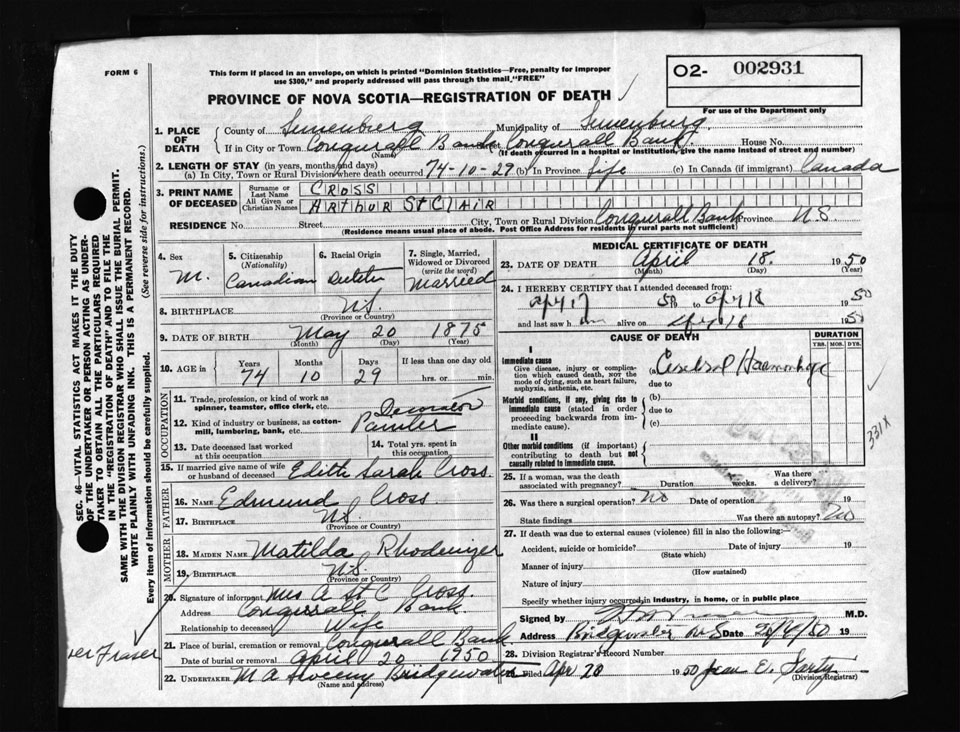 FORM 6
This form if placed in an envelope, on which is printed "Dominion Statistics—Free, penalty for improper
use $300," and properly addressed will pass through the mail "FREE"
O2- 002931
For use of the Department only
PROVINCE OF NOVA SCOTIA—REGISTRATION OF DEATH
1. PLACE OF DEATH
County of Lunenburg Municipality of Lunenburg
If in City or Town Conquerall Bank St. Conquerall Bank House No.
(Name) (If death occurred in a hospital or institution, give the name instead of street and number)
2. LENGTH OF STAY (in years, months and days)
(a) In City, Town or Rural Division where death occurred 74-10-29 (b) In Province life (c) In Canada (if immigrant) Canada
3. PRINT NAME OF DECEASED
Surname or Last Name CROSS
All Given or Christian Names ARTHUR ST CLAIR
RESIDENCE No. Street City, Town or Rural Division Conquerall Bank Province N.S
(Residence means usual place of abode. Post Office Address for Residents in rural parts not sufficient)
4. Sex M.
5. Citizenship (Nationality) Canadian
6. Racial Origin
7. Single, Married, Widowed or Divorced (write the word) Married
8. BIRTHPLACE N.S.
(Province or Country)
9. DATE OF BIRTH May 20 1875
(Month) (Day) (Year)
10. AGE in Years Months Days If less than one day old
74 10 29 hrs. or min.
OCCUPATION
11. Trade, profession, or kind of work as spinner, teamster, office clerk, etc. Decorator
12. Kind of industry or business, as cotton-mill, lumbering, bank, etc. Painter
13. Date deceased last worked at this occupation
14. Total yrs. spent in this occupation
15. If married give name of wife or husband of deceased Edith Sarah Cross.
FATHER
16. NAME Edmund Cross
17. BIRTHPLACE N.S
(Province or Country)
MOTHER
18. MAIDEN NAME Matilda Rhodenizer
19. BIRTHPLACE N.S.
(Province or Country)
20. Signature of informant Mrs A St C Cross.
Address Conquerall Bank.
Relationship to deceased Wife
21. Place of burial, cremation or removal Conquerall Bank
Date of burial or removal April 20 1950
22. UNDERTAKER M A Sweeny Bridgewater
(Name and address)
MEDICAL CERTIFICATE OF DEATH
23. DATE OF DEATH April 18. 1950
(Month) (Day) (Year)
24. I HEREBY CERTIFY that I attended deceased from:
Apl 17 50 to Apl 18 1950
and last saw him alive on Apl 18 1950
CAUSE OF DEATH
DURATION
YRS. MOS. DYS.
I
Immediate cause
Give disease, injury or complication which caused death, NOT the mode of dying, such as heart failure, asphyxia, asthenia, etc.
(a) Cerebral Haemorrhage
due to
Morbid conditions, if any, giving rise to immediate cause (stated in order proceeding backwards from immediate cause).
(b)
due to
(c)
II
Other morbid conditions (if important) contributing to death but not causally related to immediate cause.
331X
25. If a woman, was the death associated with pregnancy? Duration weeks. Was there a delivery?
26. Was there a surgical operation? No Date of operation 19
State findings Was there an autopsy? No
27. If death was due to external causes (violence) fill in also the following:
Accident, suicide or homicide? Date of injury 19
(State which)
Manner of injury
(How sustained)
Nature of injury
Specify whether injury occurred in industry, in home, or in public place
Signed by M.D.
Address Bridgewater N S Date 20/4/50 19
28. Division Registrar's Record Number
Filed Apr 20 1950 Jean E. Sarty
(Division Registrar)
SEC. 46—VITAL STATISTICS ACT MAKES IT THE DUTY
OF THE UNDERTAKER OR PERSON ACTING AS UNDERTAKER
TO OBTAIN ALL THE PARTICULARS REQUIRED
IN THE "REGISTRATION OF DEATH" AND TO FILE THE
SAME WITH THE DIVISION REGISTRAR WHO SHALL ISSUE THE BURIAL PERMIT.
WRITE PLAINLY WITH UNFADING INK. THIS IS A PERMANENT RECORD.
Every item of information should be carefully supplied. (See reverse side for instructions.)
ver Fraser